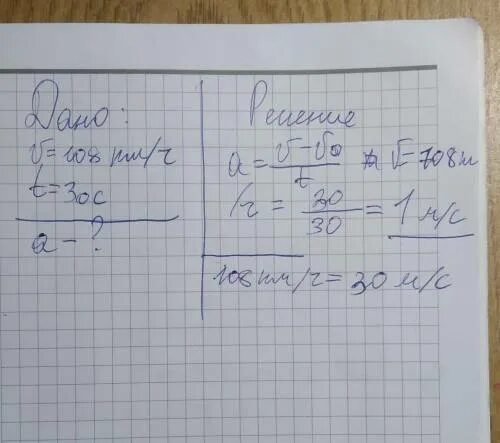 Дано:
v=108 км/ч
t=30с
a-?
Решение
a = v-v₀ / t v=108м
/ч = 30 / 30 = 1 м/с
108 км/ч = 30 м/с